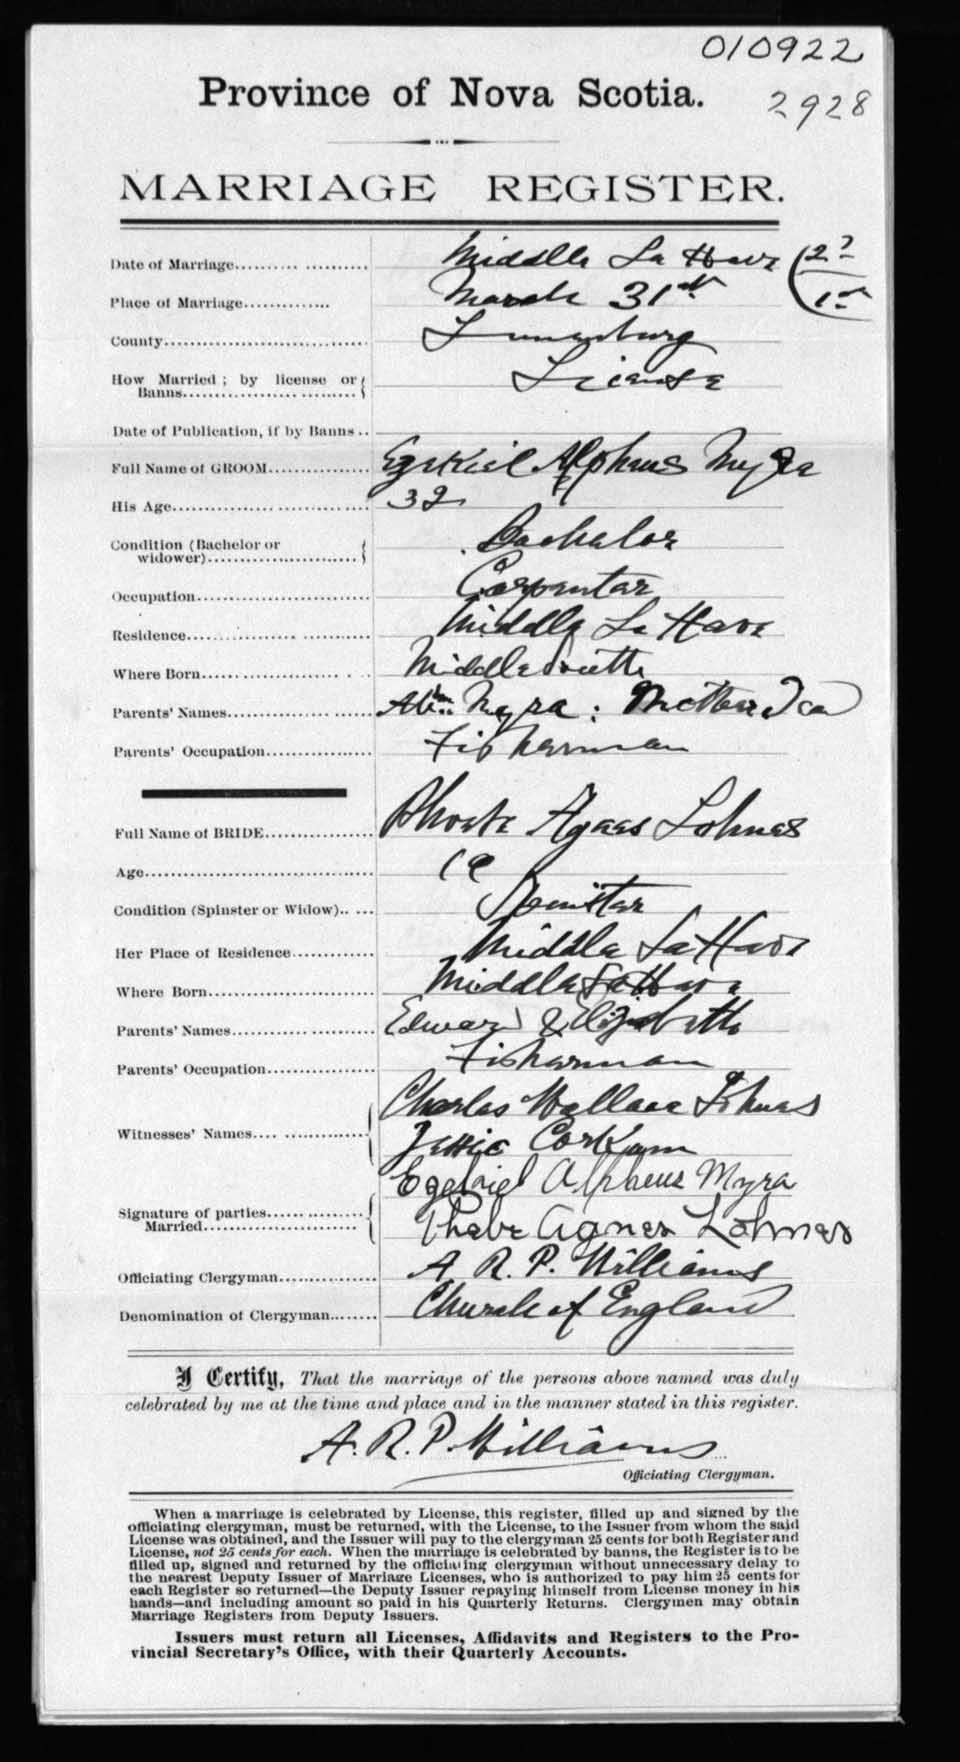 010922
Province of Nova Scotia.
2928
MARRIAGE REGISTER.
Date of Marriage.................... Middle La Have
Place of Marriage............. March 31st
County.............................. Lunenburg
How Married; by license or Banns.................... License
Date of Publication, if by Banns..
Full Name of GROOM............... Ezekiel Alpheus Myra
His Age.............................. 32
Condition (Bachelor or widower)........................ Bachelor
Occupation........................... Carpenter
Residence............................ Middle La Have
Where Born........................... Middle South
Parents' Names..................... Myra: Mother Ica
Parents' Occupation............... Fisherman
Full Name of BRIDE................ Phoebe Agnes Lohnes
Age.................................. 19
Condition (Spinster or Widow)..... Spinster
Her Place of Residence............ Middle La Have
Where Born........................... Middle La Have
Parents' Names..................... Edward & Elizabeth
Parents' Occupation............... Fisherman
Charles Wallace Lohnes
Witnesses' Names.................. Jessie Corkum
Ezekiel Alpheus Myra
Signature of parties Married........................ Phebe Agnes Lohnes
Officiating Clergyman............. A. R. P. Williams
Denomination of Clergyman........ Church of England
I Certify, That the marriage of the persons above named was duly
celebrated by me at the time and place and in the manner stated in this register.
A. R. P. Williams
Officiating Clergyman.
When a marriage is celebrated by License, this register, filled up and signed by the
officiating clergyman, must be returned, with the License, to the Issuer from whom the said
License was obtained, and the Issuer will pay to the clergyman 25 cents for both Register and
License, not 25 cents for each. When the marriage is celebrated by banns, the Register is to be
filled up, signed and returned by the officiating clergyman without unnecessary delay to
the nearest Deputy Issuer of Marriage Licenses, who is authorized to pay him 25 cents for
each Register so returned—the Deputy Issuer repaying himself from License money in his
hands—and including amount so paid in his Quarterly Returns. Clergymen may obtain
Marriage Registers from Deputy Issuers.
Issuers must return all Licenses, Affidavits and Registers to the Pro-
vincial Secretary's Office, with their Quarterly Accounts.